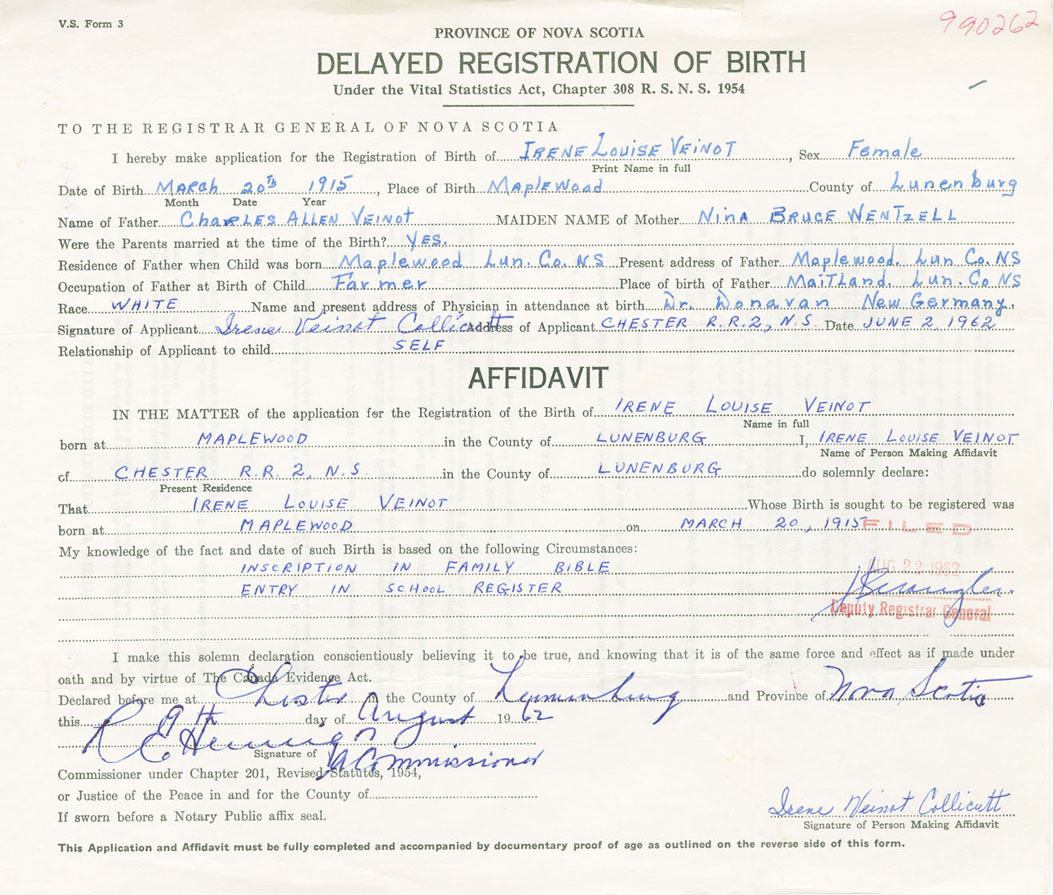 V.S. Form 3
990262
PROVINCE OF NOVA SCOTIA
DELAYED REGISTRATION OF BIRTH
Under the Vital Statistics Act, Chapter 308 R. S. N. S. 1954
TO THE REGISTRAR GENERAL OF NOVA SCOTIA
I hereby make application for the Registration of Birth of IRENE LOUISE VEINOT, Sex Female
Print Name in full
Date of Birth MARCH 20TH 1915, Place of Birth Maplewood County of Lunenburg
Month Date Year
Name of Father CHARLES ALLEN VEINOT MAIDEN NAME of Mother NINA BRUCE WENTZELL
Were the Parents married at the time of the Birth? YES.
Residence of Father when Child was born Maplewood Lun. Co. NS Present address of Father Maplewood. Lun Co. NS
Occupation of Father at Birth of Child Farmer Place of birth of Father MAITLAND. Lun. Co NS
Race WHITE Name and present address of Physician in attendance at birth Dr. Donavan New Germany.
Signature of Applicant Irene Veinot Collicutt Address of Applicant CHESTER R.R.2, N.S. Date JUNE 2, 1962
Relationship of Applicant to child SELF
AFFIDAVIT
IN THE MATTER of the application for the Registration of the Birth of IRENE LOUISE VEINOT
Name in full
born at MAPLEWOOD in the County of LUNENBURG I, IRENE LOUISE VEINOT
Name of Person Making Affidavit
of CHESTER R.R. 2, N.S. in the County of LUNENBURG do solemnly declare:
Present Residence
That IRENE LOUISE VEINOT Whose Birth is sought to be registered was
born at MAPLEWOOD on MARCH 20, 1915
FILED
My knowledge of the fact and date of such Birth is based on the following Circumstances:
INSCRIPTION IN FAMILY BIBLE
AUG 22 1962
ENTRY IN SCHOOL REGISTER
Deputy Registrar General
I make this solemn declaration conscientiously believing it to be true, and knowing that it is of the same force and effect as if made under
oath and by virtue of The Canada Evidence Act.
Declared before me at Chester the County of Lunenburg and Province of Nova Scotia
this 9th day of August 1962
Signature of A Commissioner
Commissioner under Chapter 201, Revised Statutes, 1954,
or Justice of the Peace in and for the County of
If sworn before a Notary Public affix seal.
Irene Veinot Collicutt
Signature of Person Making Affidavit
This Application and Affidavit must be fully completed and accompanied by documentary proof of age as outlined on the reverse side of this form.